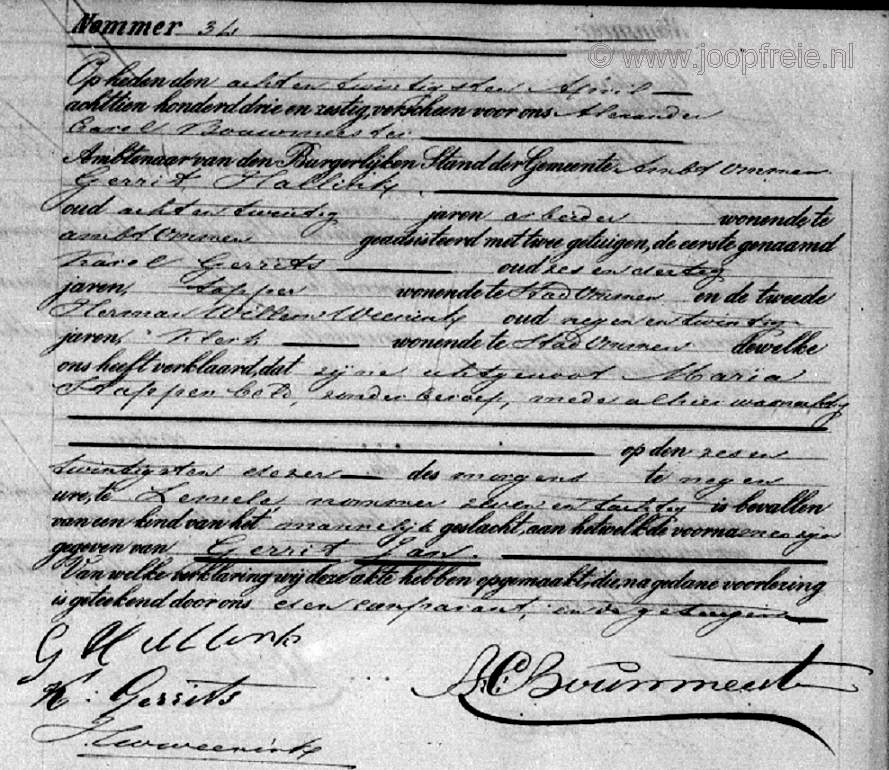 Nommer 34
© www.joopfreie.nl
Op heden den acht en twintigsten April
achttien honderd drie en zestig, verscheen voor ons Alexander
Carel Bouwmeester
Ambtenaar van den Burgerlijken Stand der Gemeente Ambt Ommen
Gerrit Hallink
oud acht en twintig jaren arbeider wonende te
ambt Ommen geadsisteerd met twee getuigen, de eerste genaamd
Karel Gerrits oud zes en dertig
jaren, tapper wonende te Stad Ommen en de tweede
Herman Willem Weenink oud negen en twintig
jaren, klerk wonende te Stad Ommen dewelke
ons heeft verklaard, dat zijne echtgenoot Maria
zonder beroep, mede alhier woonachtig
op den zes en
twintigsten dezer des morgens te negen
ure, te Lemele, nommer zeven en tachtig is bevallen
van een kind van het mannelijk geslacht, aan hetwelk de voornamen zijn
gegeven van Gerrit Jan.
Van welke verklaring wij deze akte hebben opgemaakt, die, na gedane voorlezing
is geteekend door ons den comparant, en de getuigen
G Hallink
K. Gerrits
A.C. Bouwmeester
HW Weenink